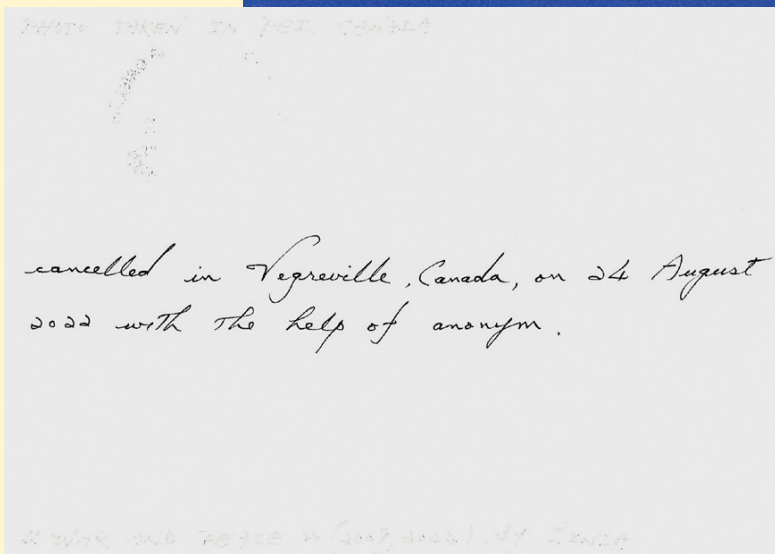 PHOTO TAKEN IN PEI, CANADA
cancelled in Vegreville, Canada, on 24 August
2022 with the help of anonym.